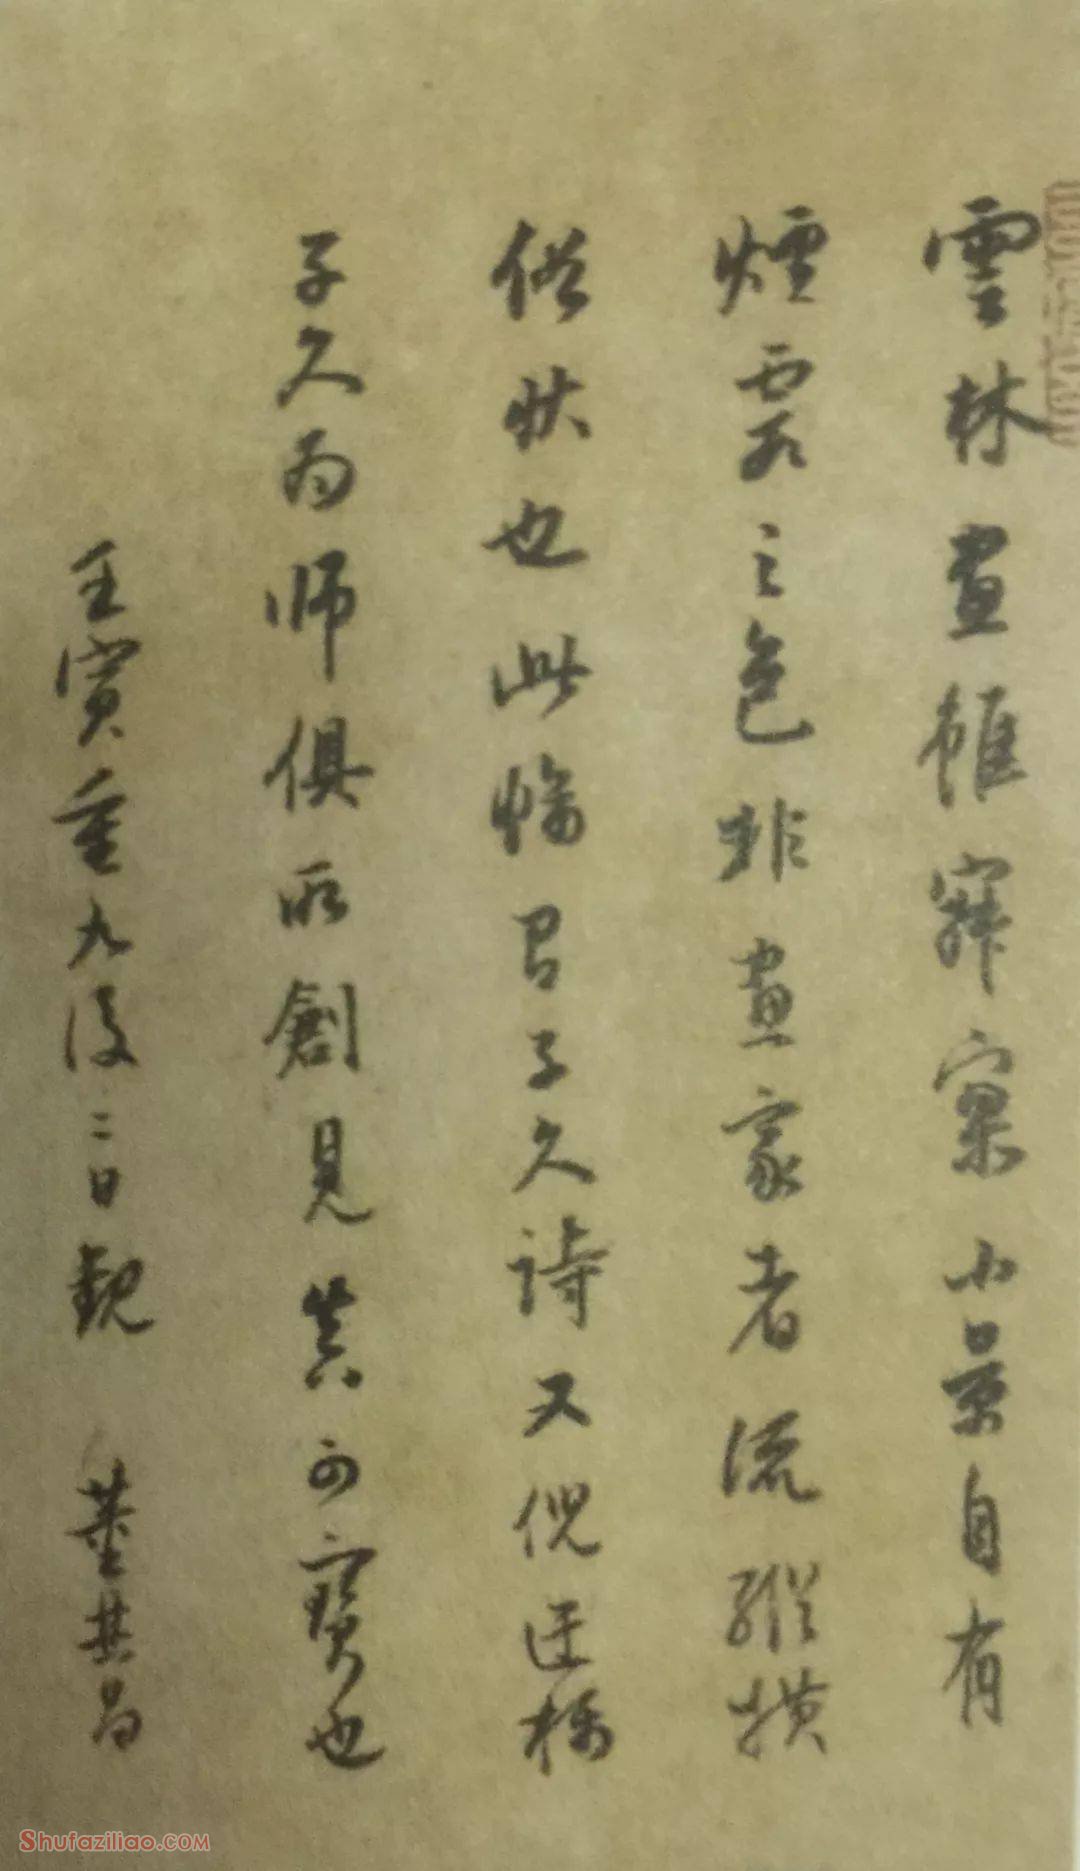 雲林畫雖寂寞小景自有
煙霞之色非畫家者流縱橫
俗狀也此幅有子久詩又倪迂稱
子久為師俱所創見真可寶也
壬寅重九後二日觀 董其昌
Shufaziliao.com